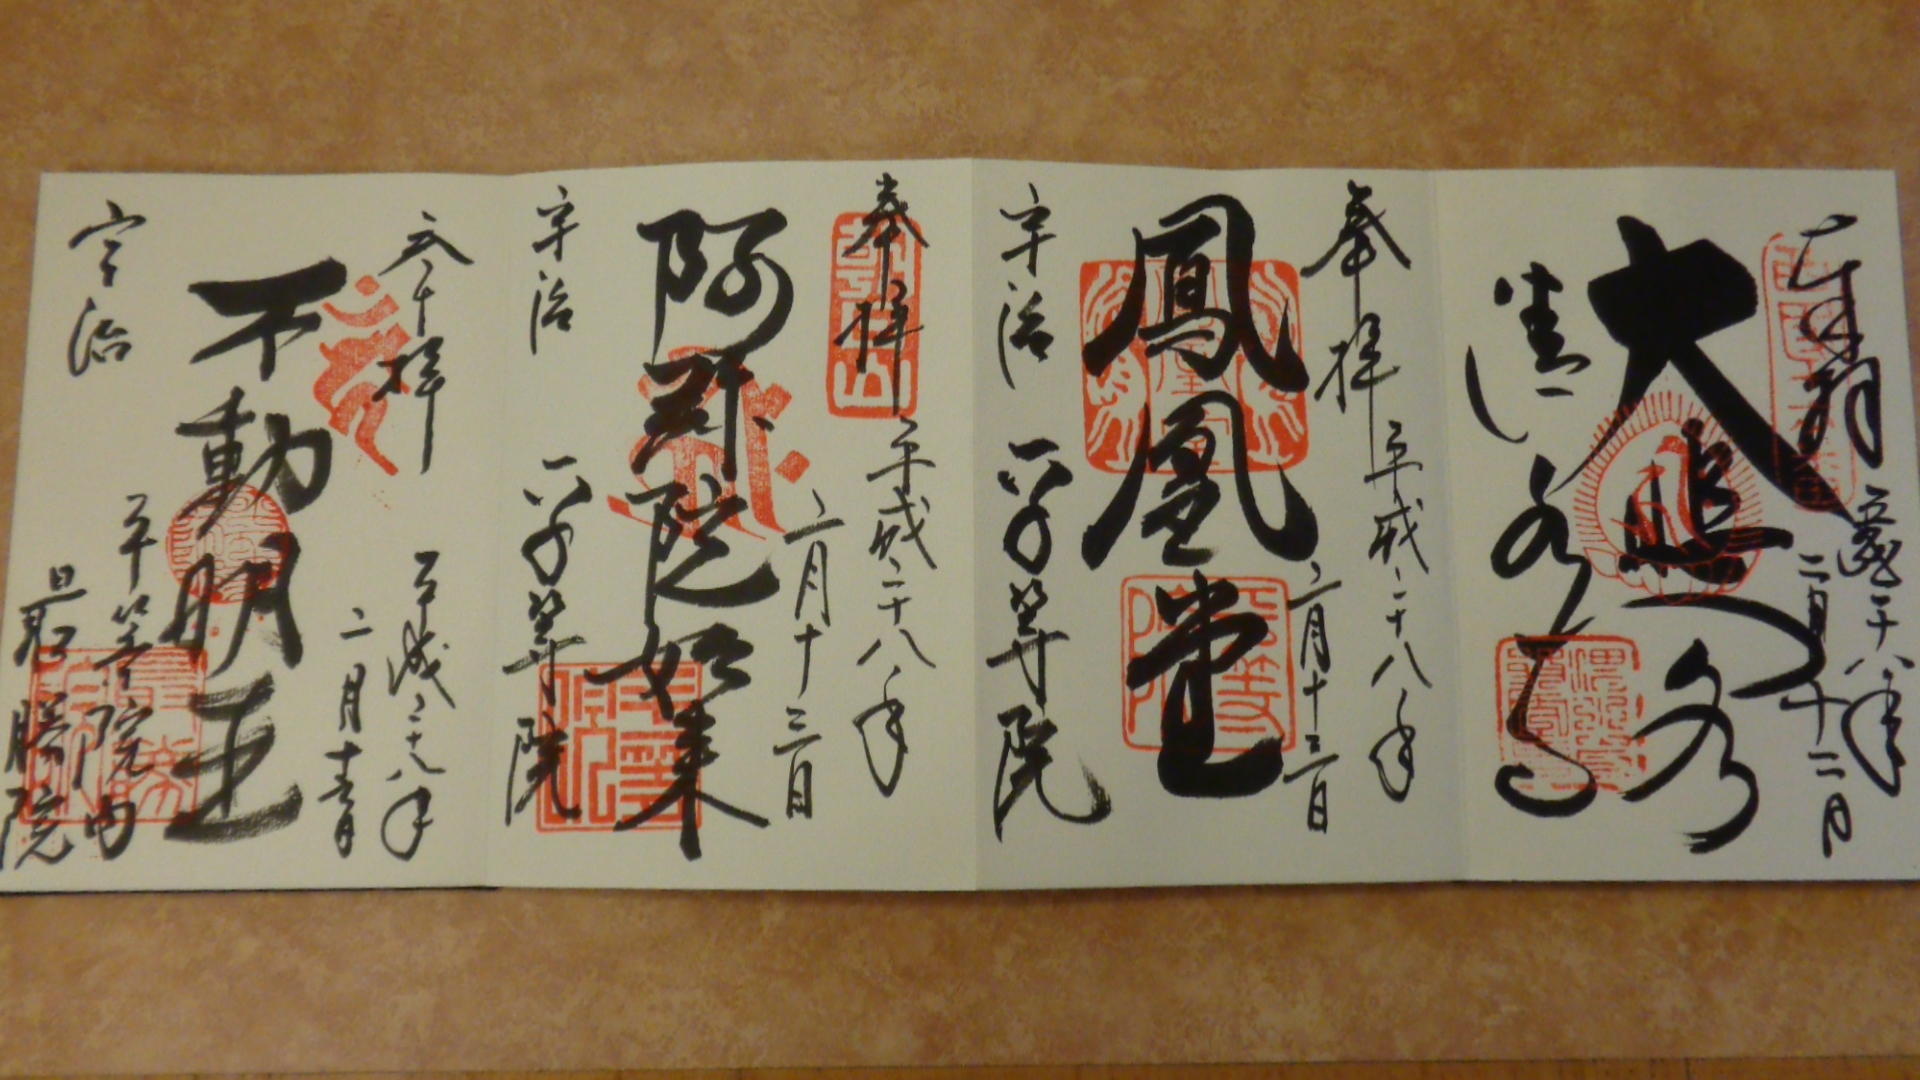 奉拝
平成二十八年
二月十二日
大悲閣
清水寺
奉拝
平成二十八年
二月十三日
鳳凰堂
宇治
平等院
奉拝
平成二十八年
二月十三日
阿弥陀如来
宇治
平等院
奉拝
平成二十八年
二月十三日
不動明王
宇治
平等院内
最勝院